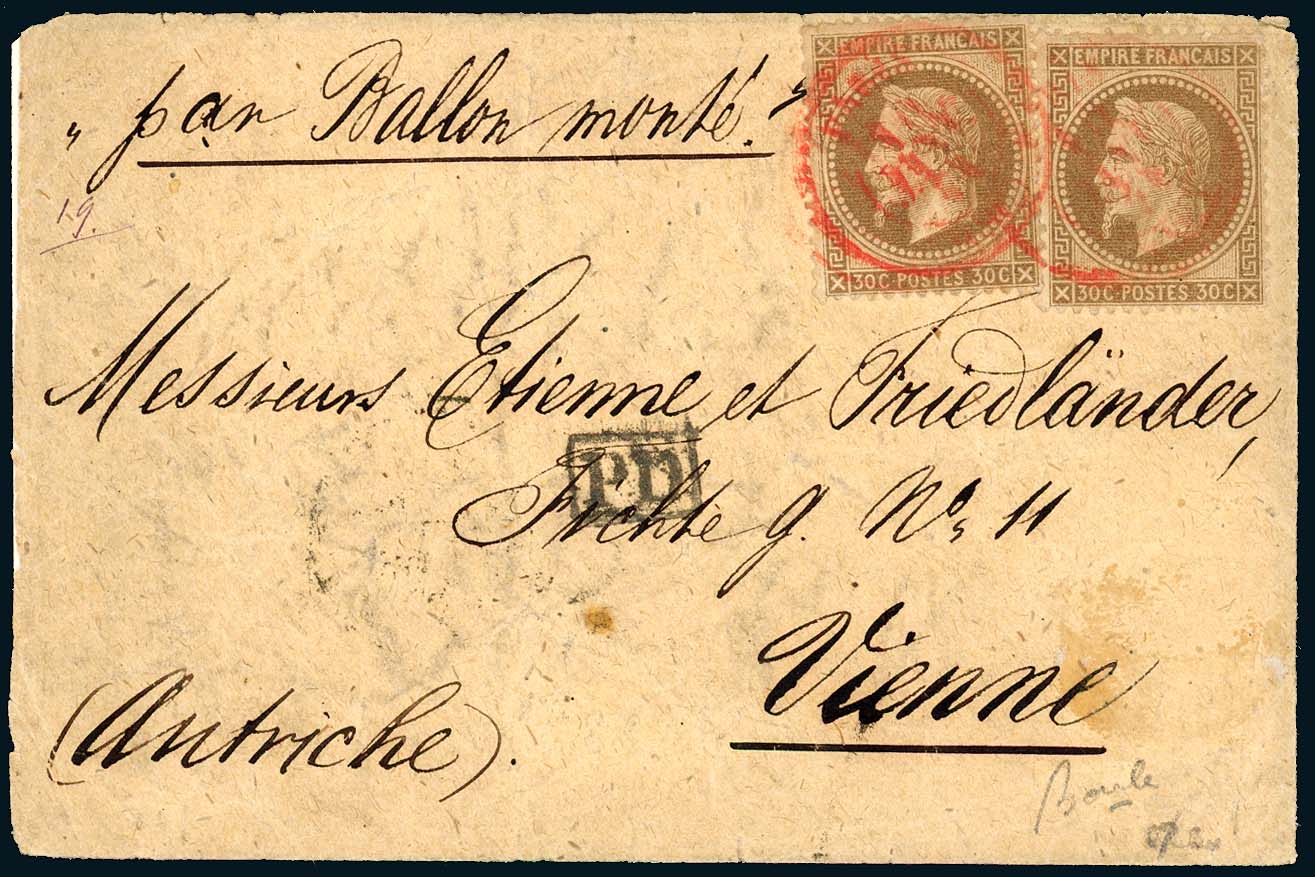 „ par Ballon monté. "
EMPIRE FRANÇAIS
30C POSTES 30C
EMPIRE FRANÇAIS
30C POSTES 30C
19.
Messieurs Etienne et Friedländer,
PD
Fichte g. No. 11
Vienne
(Autriche).
Boule